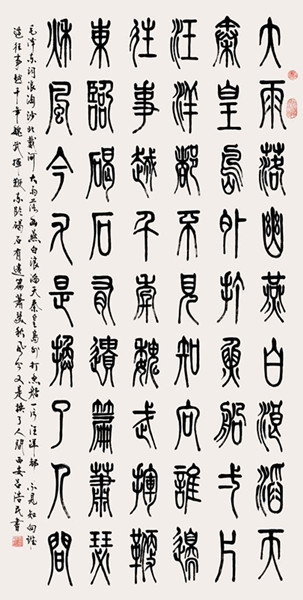 大雨落幽燕白浪滔天
秦皇島外打魚船弌片
汪洋都不見知向誰邊
往事越千年魏武揮鞭
東臨碣石有遺篇蕭瑟
秋風今又是換了人間
毛澤東詞浪淘沙北戴河 大雨落幽燕白浪滔天秦皇島外打魚船一片汪洋都不見知向誰
邊往事越千年魏武揮鞭東臨碣石有遺篇蕭瑟秋風今又是換了人間 西安呂浩民書